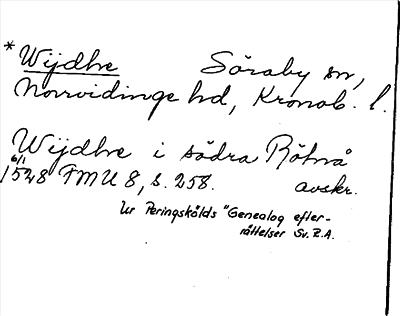 * Wijdhe Söraby sn,
Norrvidinge hd, Kronob. l.
Wijdhe i södra Rötnå
6/1
1528 FMU 8, s. 258. avskr.
Ur Peringskölds "Genealog efter-
rättelser Sv. R.A.